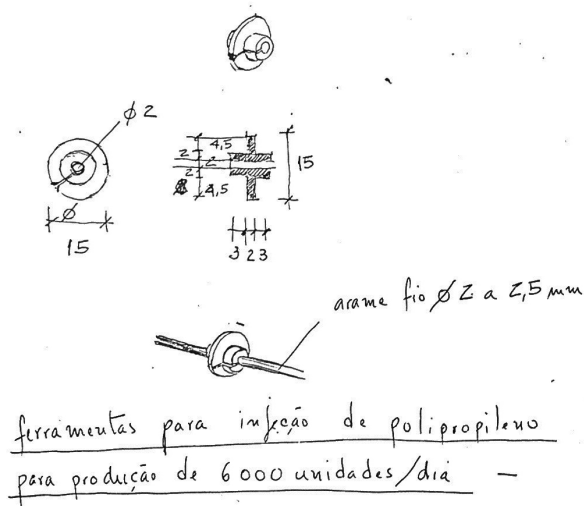 ϕ 2
4,5
2
2
2
4,5
15
ϕ
15
3 2 3
arame fio ϕ 2 a 2,5 mm
ferramentas para injeção de polipropileno
para produção de 6 000 unidades/dia —